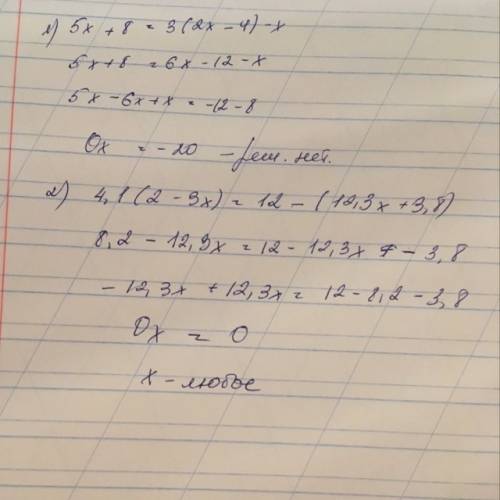 1) 5x + 8 = 3(2x - 4) - x
5x + 8 = 6x - 12 - x
5x - 6x + x = -12 - 8
0x = -20 - реш. нет.
2) 4,1(2 - 3x) = 12 - (12,3x + 3,8)
8,2 - 12,3x = 12 - 12,3x - 3,8
- 12,3x + 12,3x = 12 - 8,2 - 3,8
0x = 0
x - любое